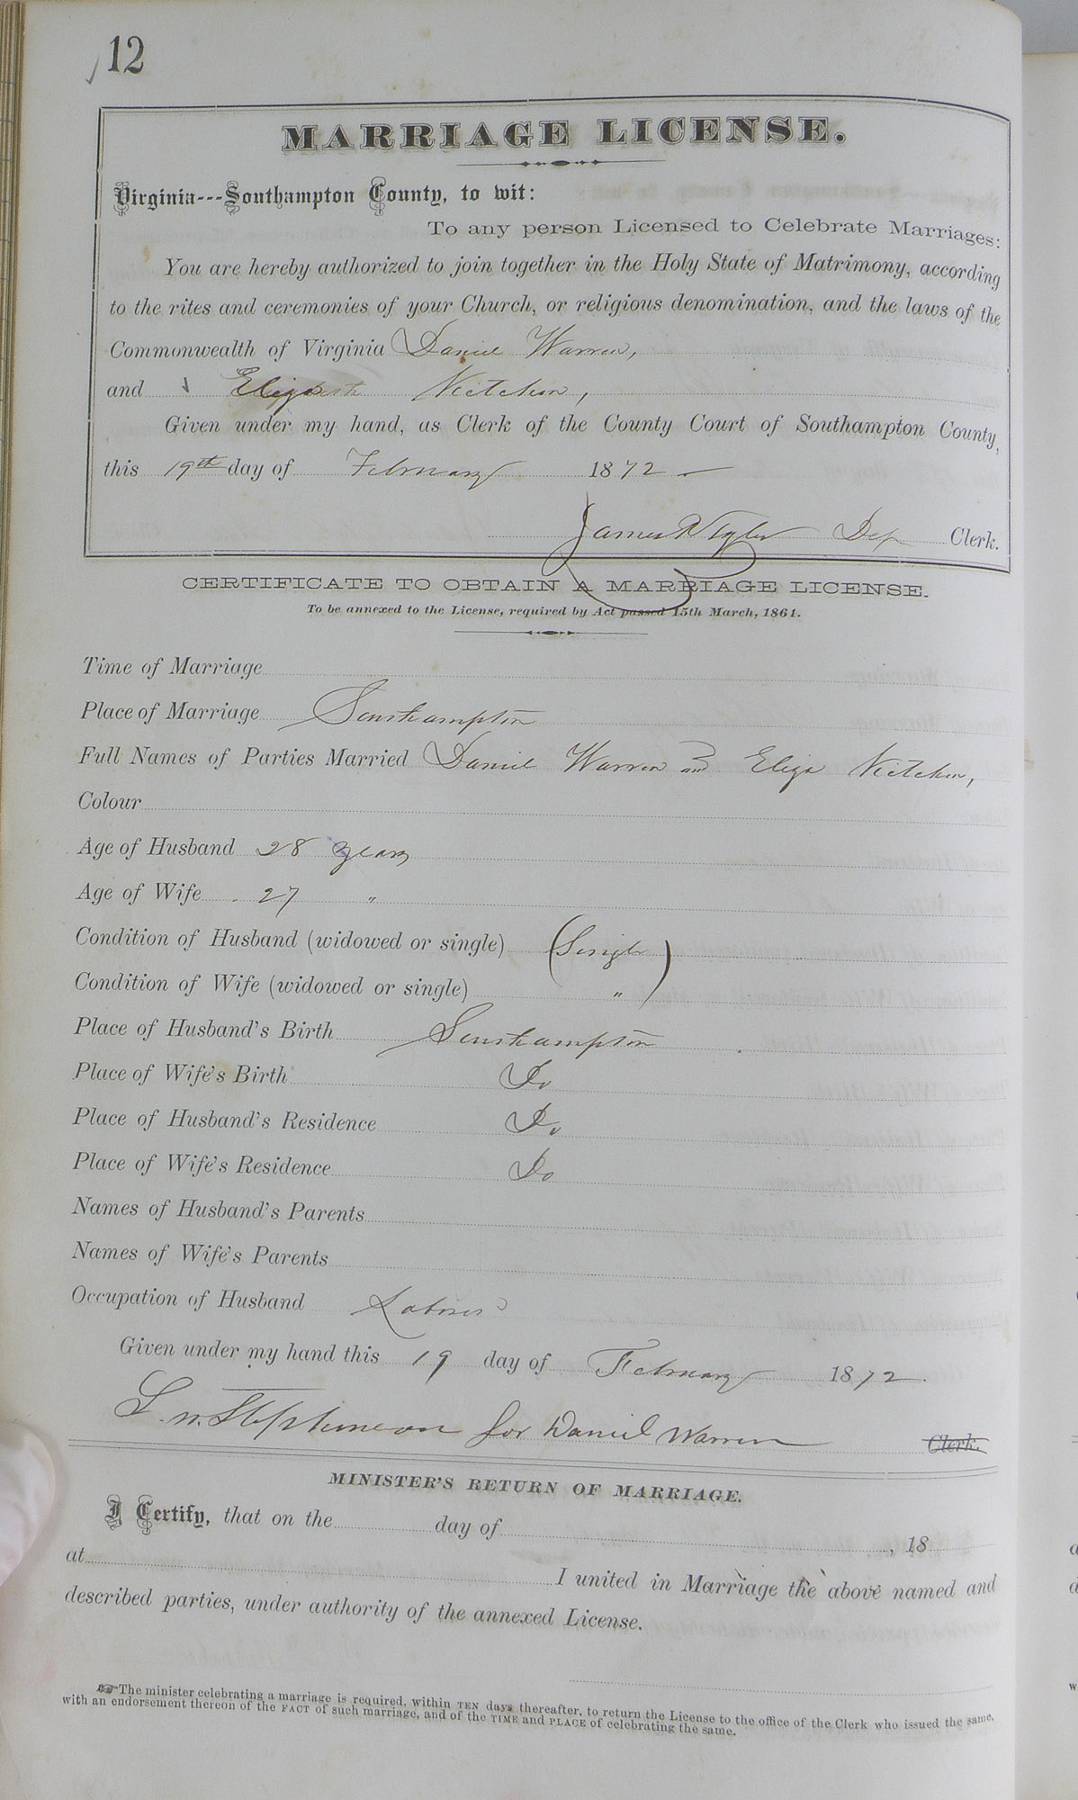 12
MARRIAGE LICENSE.
Virginia---Southampton County, to wit:
To any person Licensed to Celebrate Marriages:
You are hereby authorized to join together in the Holy State of Matrimony, according
to the rites and ceremonies of your Church, or religious denomination, and the laws of the
Commonwealth of Virginia Daniel Warren,
and Eliza Kitchen,
Given under my hand, as Clerk of the County Court of Southampton County,
this 19th day of February 1872
James R Tyler Dep Clerk.
CERTIFICATE TO OBTAIN A MARRIAGE LICENSE.
To be annexed to the License, required by Act passed 15th March, 1861.
Time of Marriage
Place of Marriage Southampton
Full Names of Parties Married Daniel Warren and Eliza Kitchen,
Colour
Age of Husband 28 years
Age of Wife 27 "
Condition of Husband (widowed or single) (Single)
Condition of Wife (widowed or single) "
Place of Husband's Birth Southampton
Place of Wife's Birth Do
Place of Husband's Residence Do
Place of Wife's Residence Do
Names of Husband's Parents
Names of Wife's Parents
Occupation of Husband Laborer
Given under my hand this 19 day of February 1872.
Stephenson for Daniel Warren Clerk.
MINISTER'S RETURN OF MARRIAGE.
I Certify, that on the day of , 18
at I united in Marriage the above named and
described parties, under authority of the annexed License.
☞ The minister celebrating a marriage is required, within TEN days thereafter, to return the License to the office of the Clerk who issued the same,
with an endorsement thereon of the FACT of such marriage, and of the TIME and PLACE of celebrating the same.